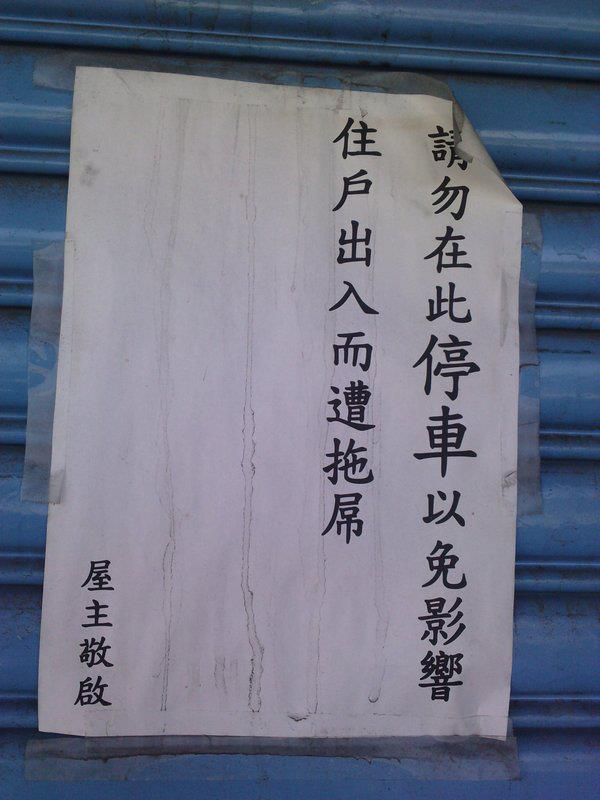 請勿在此停車以免影響
住戶出入而遭拖屌
屋主敬啟